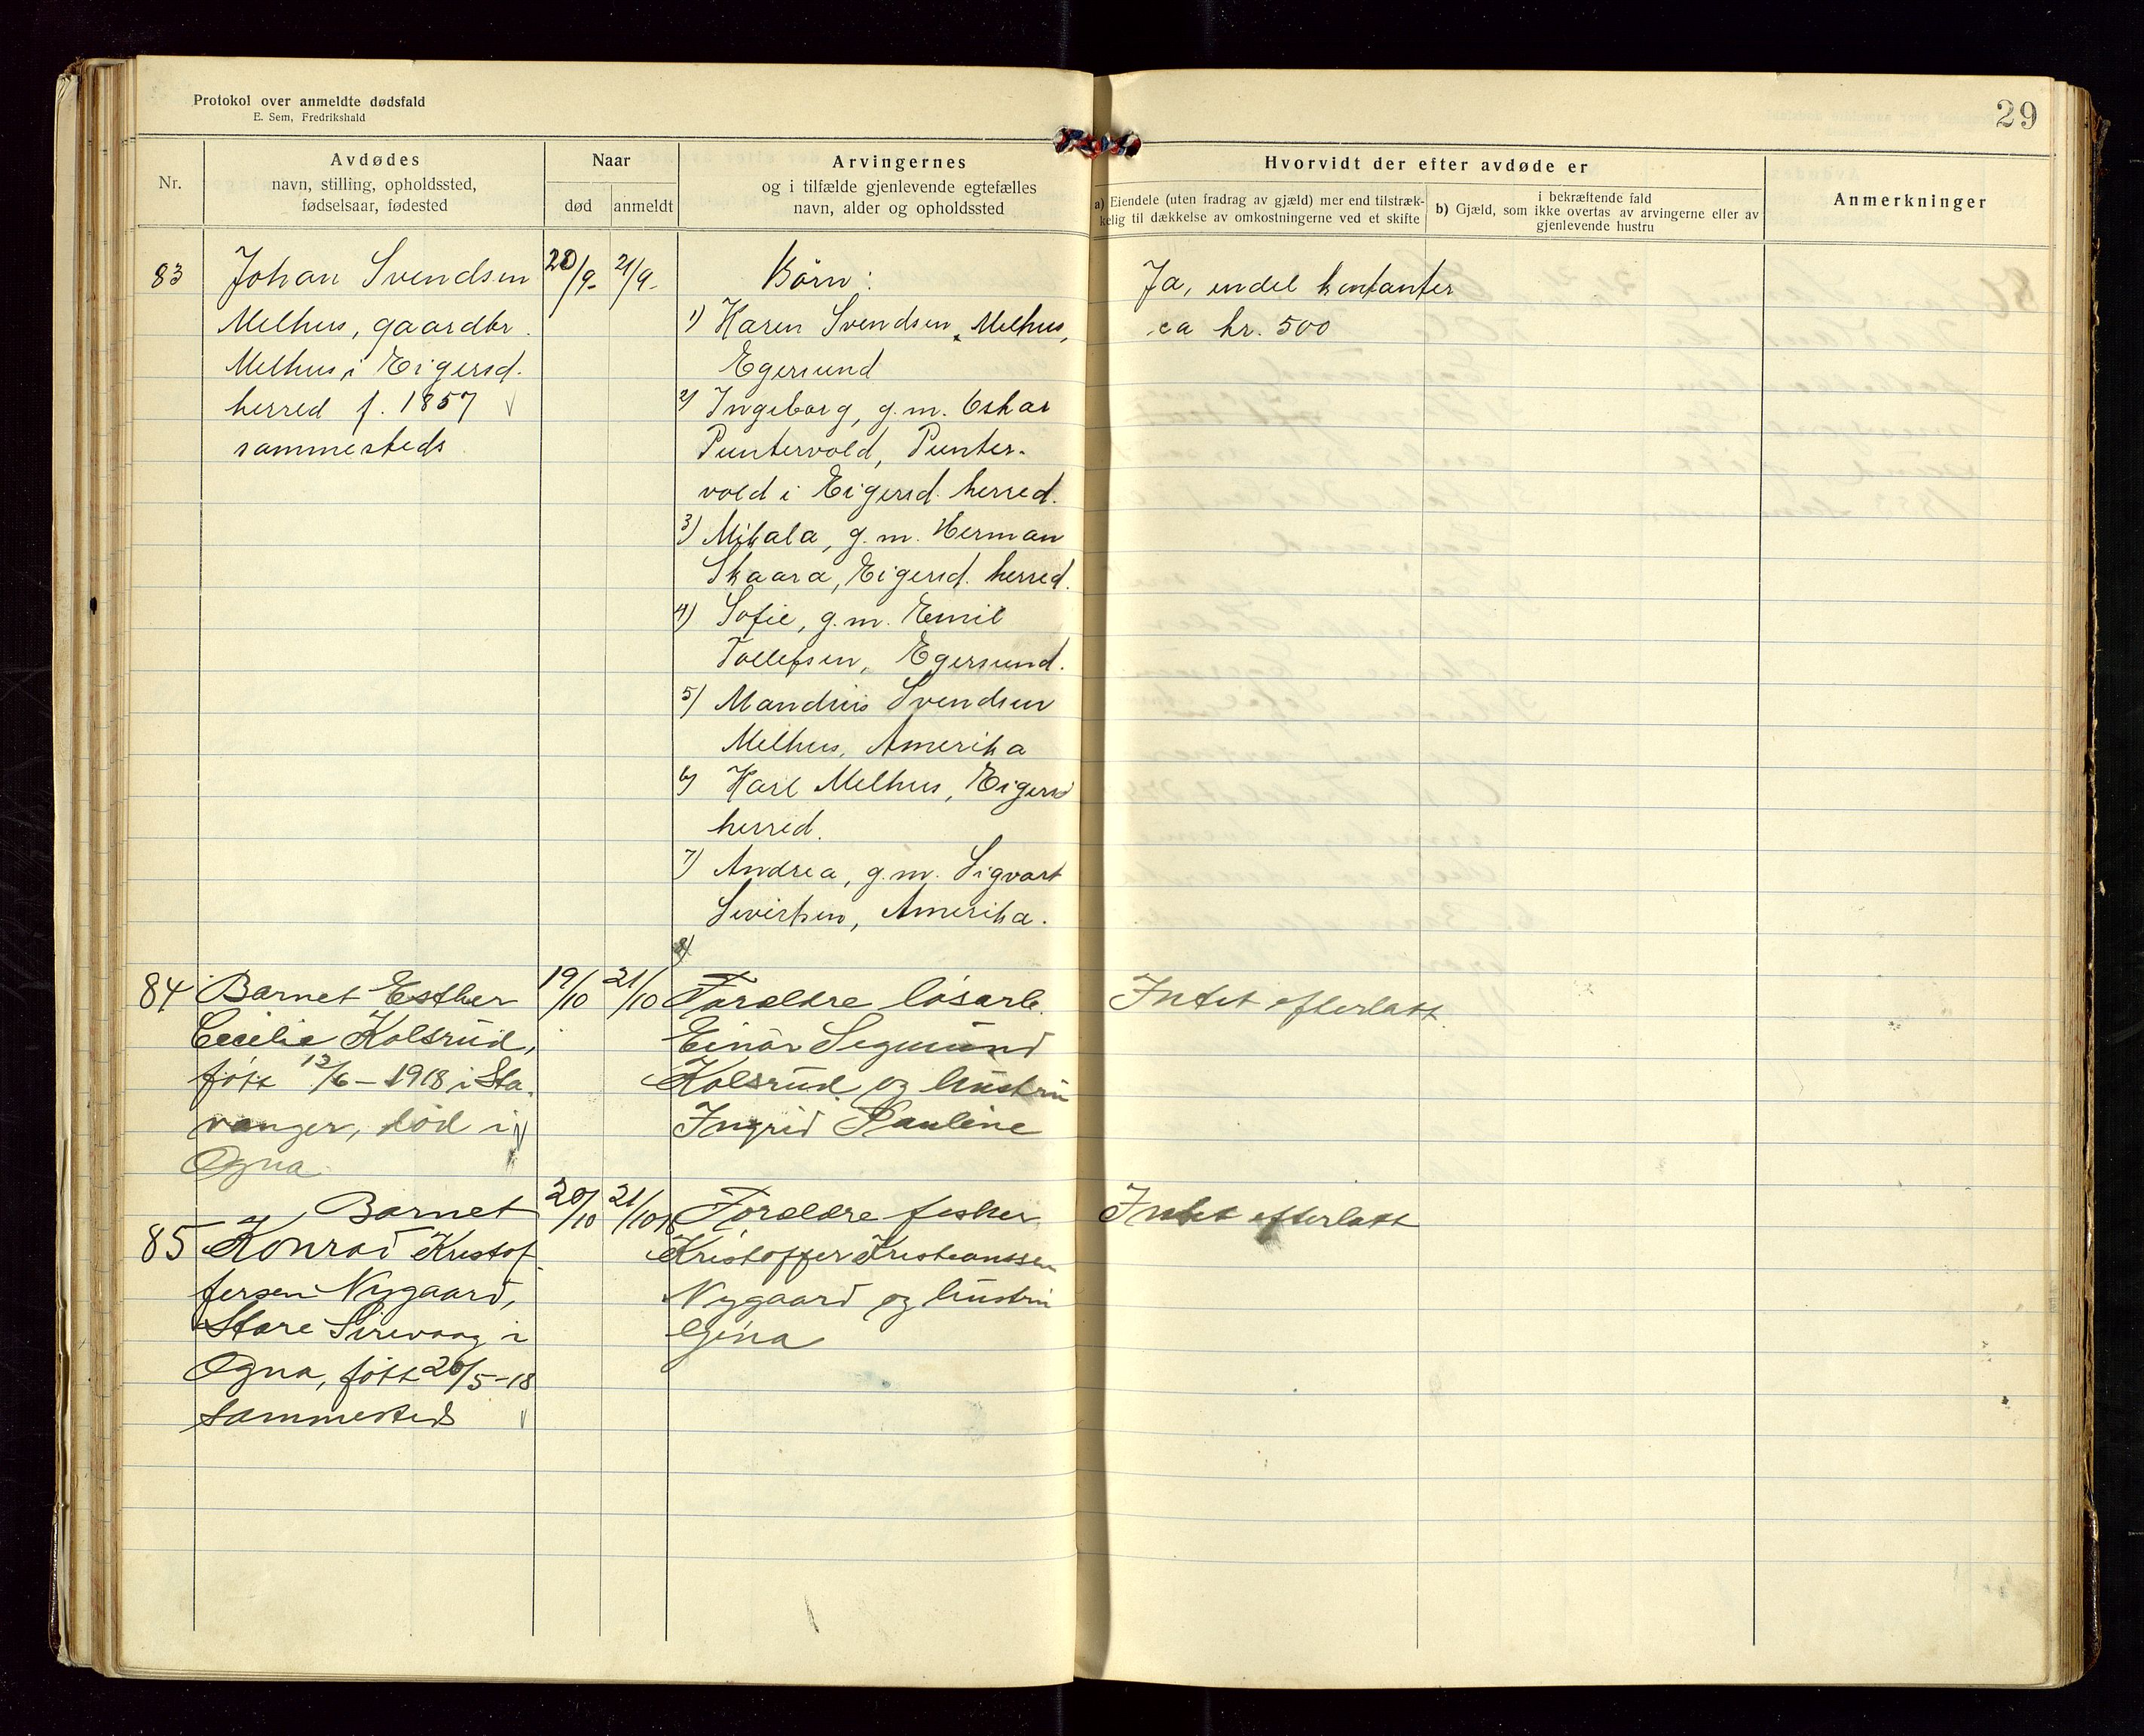 Protokol over anmeldte dødsfald
E. Sem, Fredrikshald
29
Nr.
Avdødes
navn, stilling, opholdssted,
fødselsaar, fødested
Naar
død
anmeldt
Arvingernes
og i tilfælde gjenlevende egtefælles
navn, alder og opholdssted
Hvorvidt der efter avdøde er
a) Eiendele (uten fradrag av gjæld) mer end tilstræk-
kelig til dækkelse av omkostningerne ved et skifte
b) Gjæld, som
i bekræftende fald
ikke overtas av arvingerne eller av
gjenlevende hustru
Anmerkninger
83
Johan Svendsen
Melhus, gaardbr.
Melhus i Eigersd.
herred f. 1857
sammesteds
20/9-
21/9-
Børn:
1) Karen Svendsen Melhus,
Egersund
2) Ingeborg, g.m. Oskar
Puntervold, Punter-
vold i Eigersd. herred.
3) Mikala, g.m. Herman
Skaara, Eigersd. herred.
4) Sofie, g.m. Emil
Tollefsen, Egersund.
5) Mandius Svendsen
Melhus, Amerika
6) Karl Melhus, Eigersd
herred.
7) Andrea, g.m. Sigvart
Sivertsen, Amerika.
8)
Ja, endel kontanter
ca kr. 500
84
Barnet Esther
Cecilie Kolsrud,
født 13/6-1918 i Sta-
vanger, død i
Ogna
19/10
21/10
Forældre løsarb.
Einar Sigmund
Kolsrud og hustru
Ingrid Pauline
Intet efterlatt
85
Barnet
Konrad Kristof-
fersen Nygaard,
Store Sirevaag i
Ogna, født 20/5-18
sammesteds
20/10
21/10
Forældre fisker
Kristoffer Kristianssen
Nygaard og hustru
Gina
Intet efterlatt